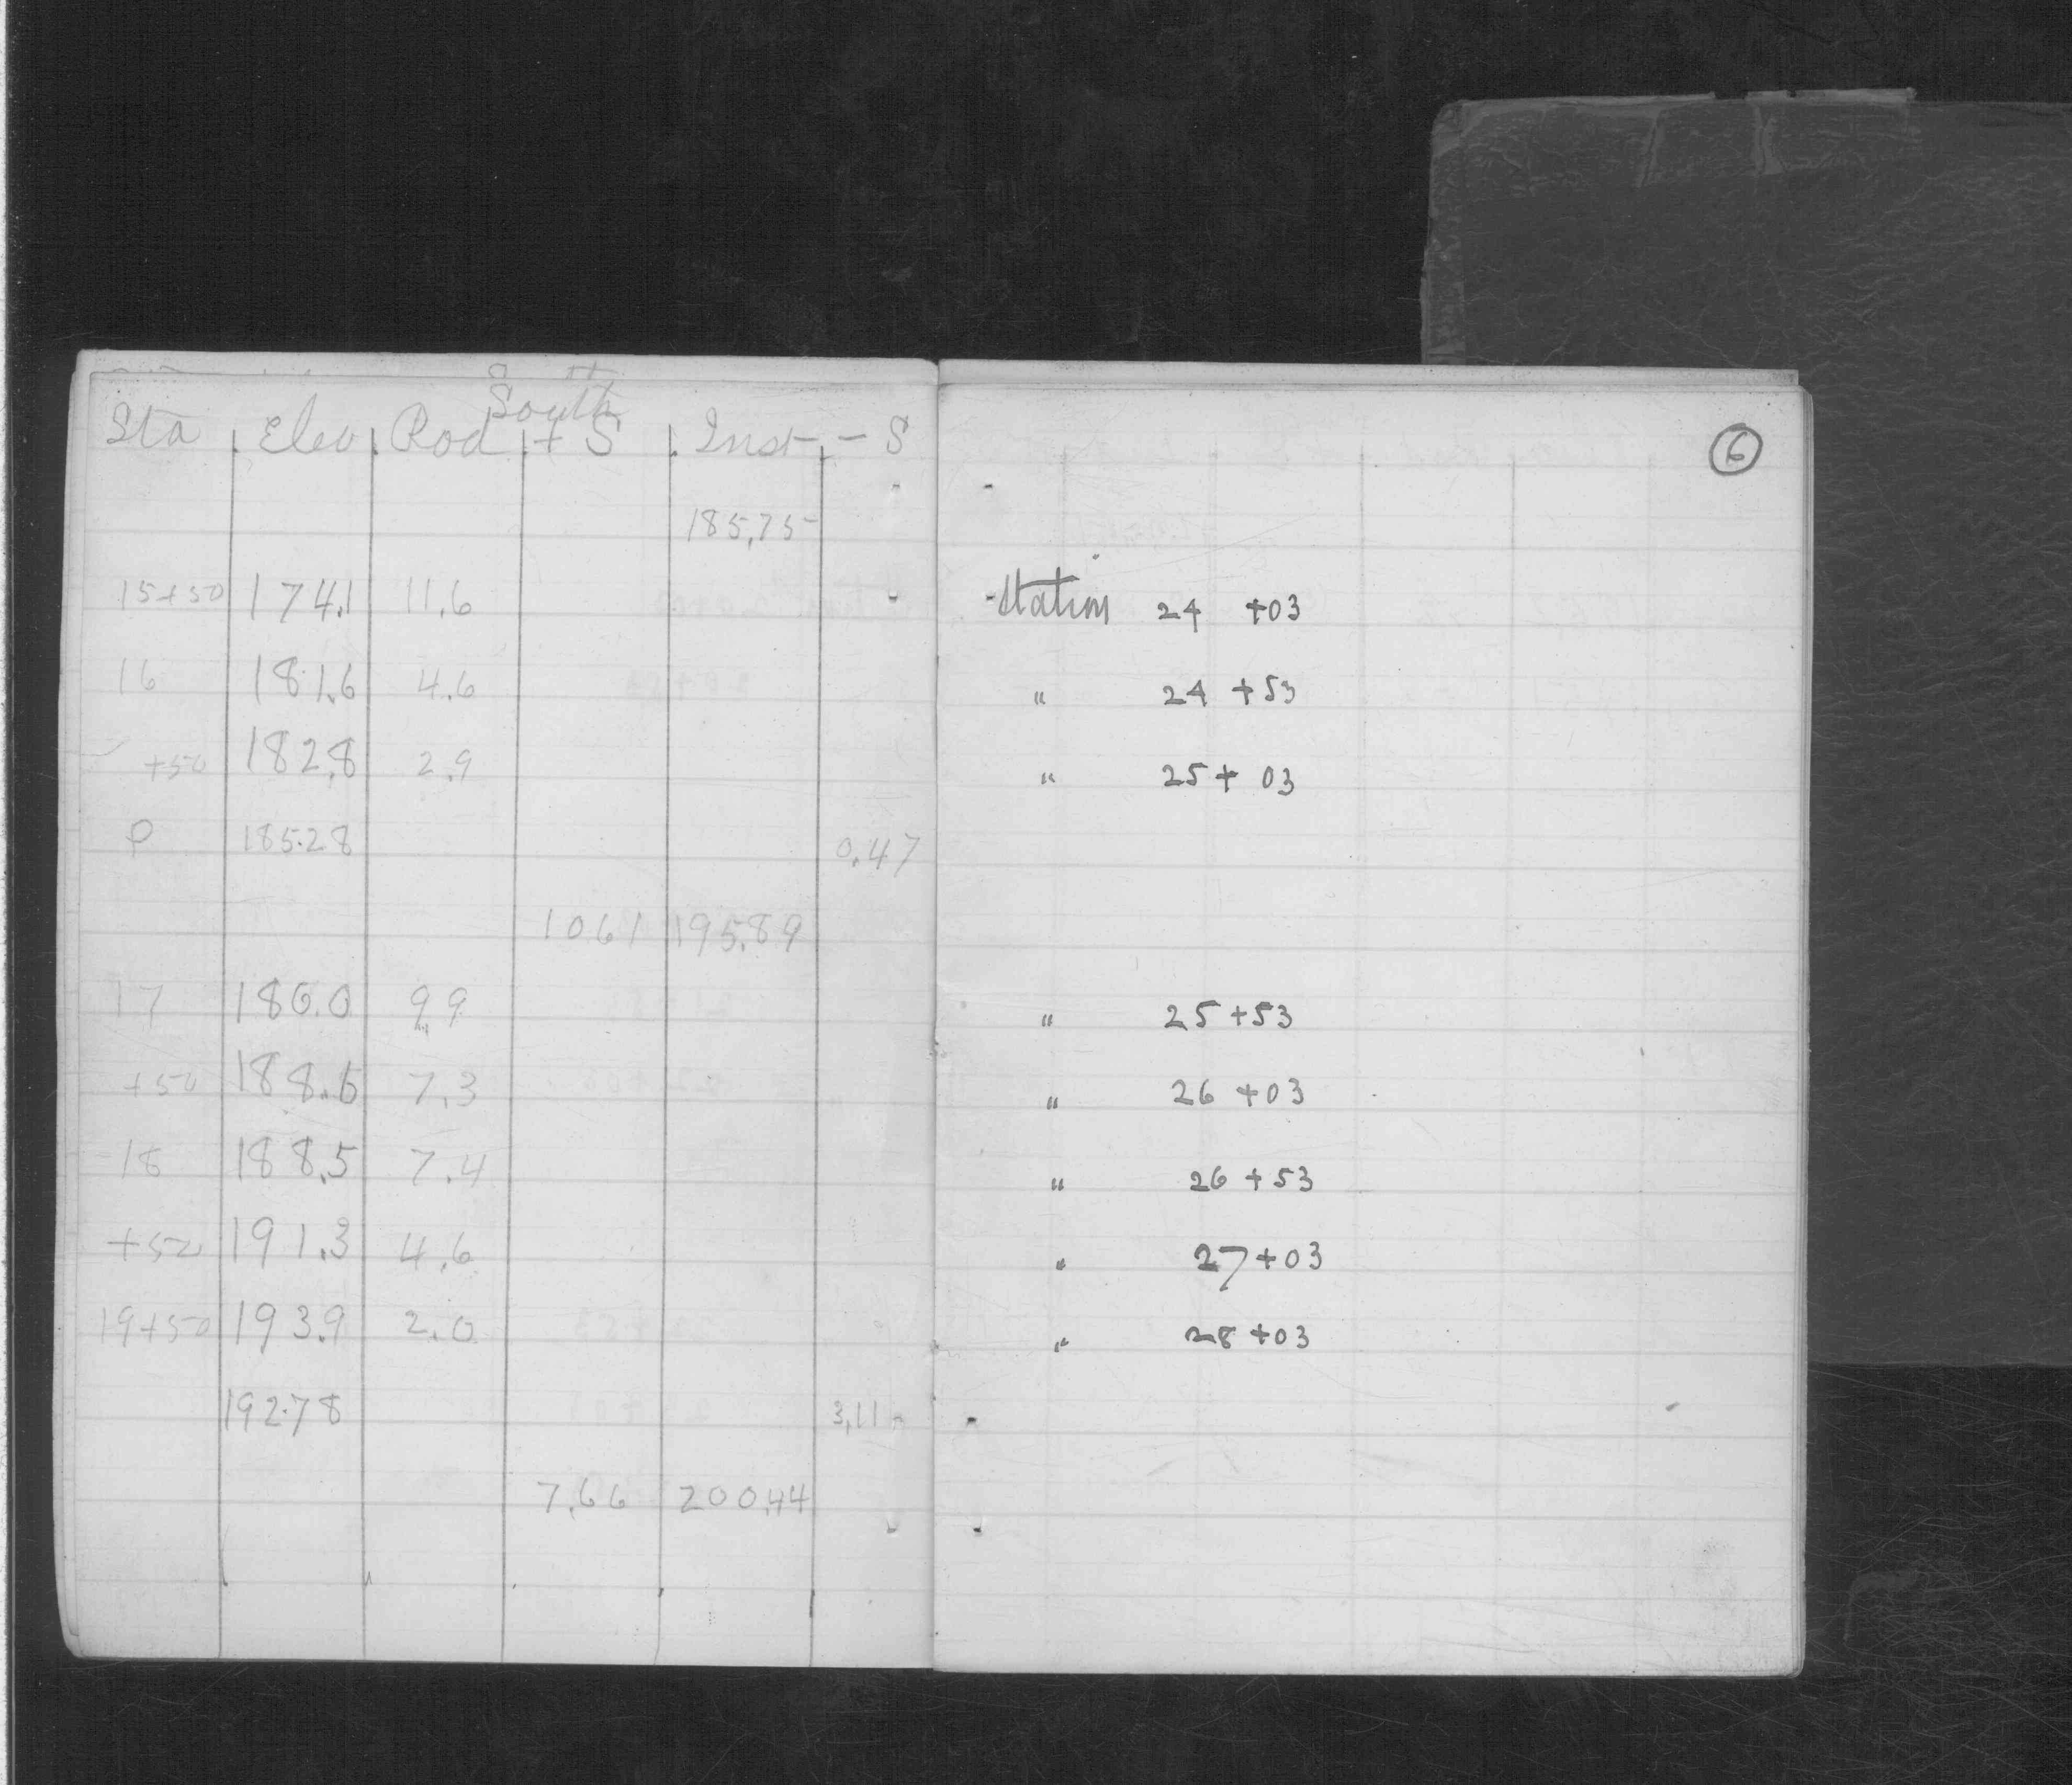 South
Sta Elev Rod + S Inst - S
185,75
15+50 174.1 11.6
16 181.6 4.6
+50 182.8 2.9
P 185.28 0.47
1061 195.89
17 186.0 9.9
+50 188.6 7.3
18 188.5 7.4
+50 191.3 4.6
19+50 193.9 2.0
192.78 3,11
7.66 200.44
6
Station 24 +03
" 24 +53
" 25+ 03
" 25+53
" 26 +03
" 26 +53
" 27+03
" 28 +03